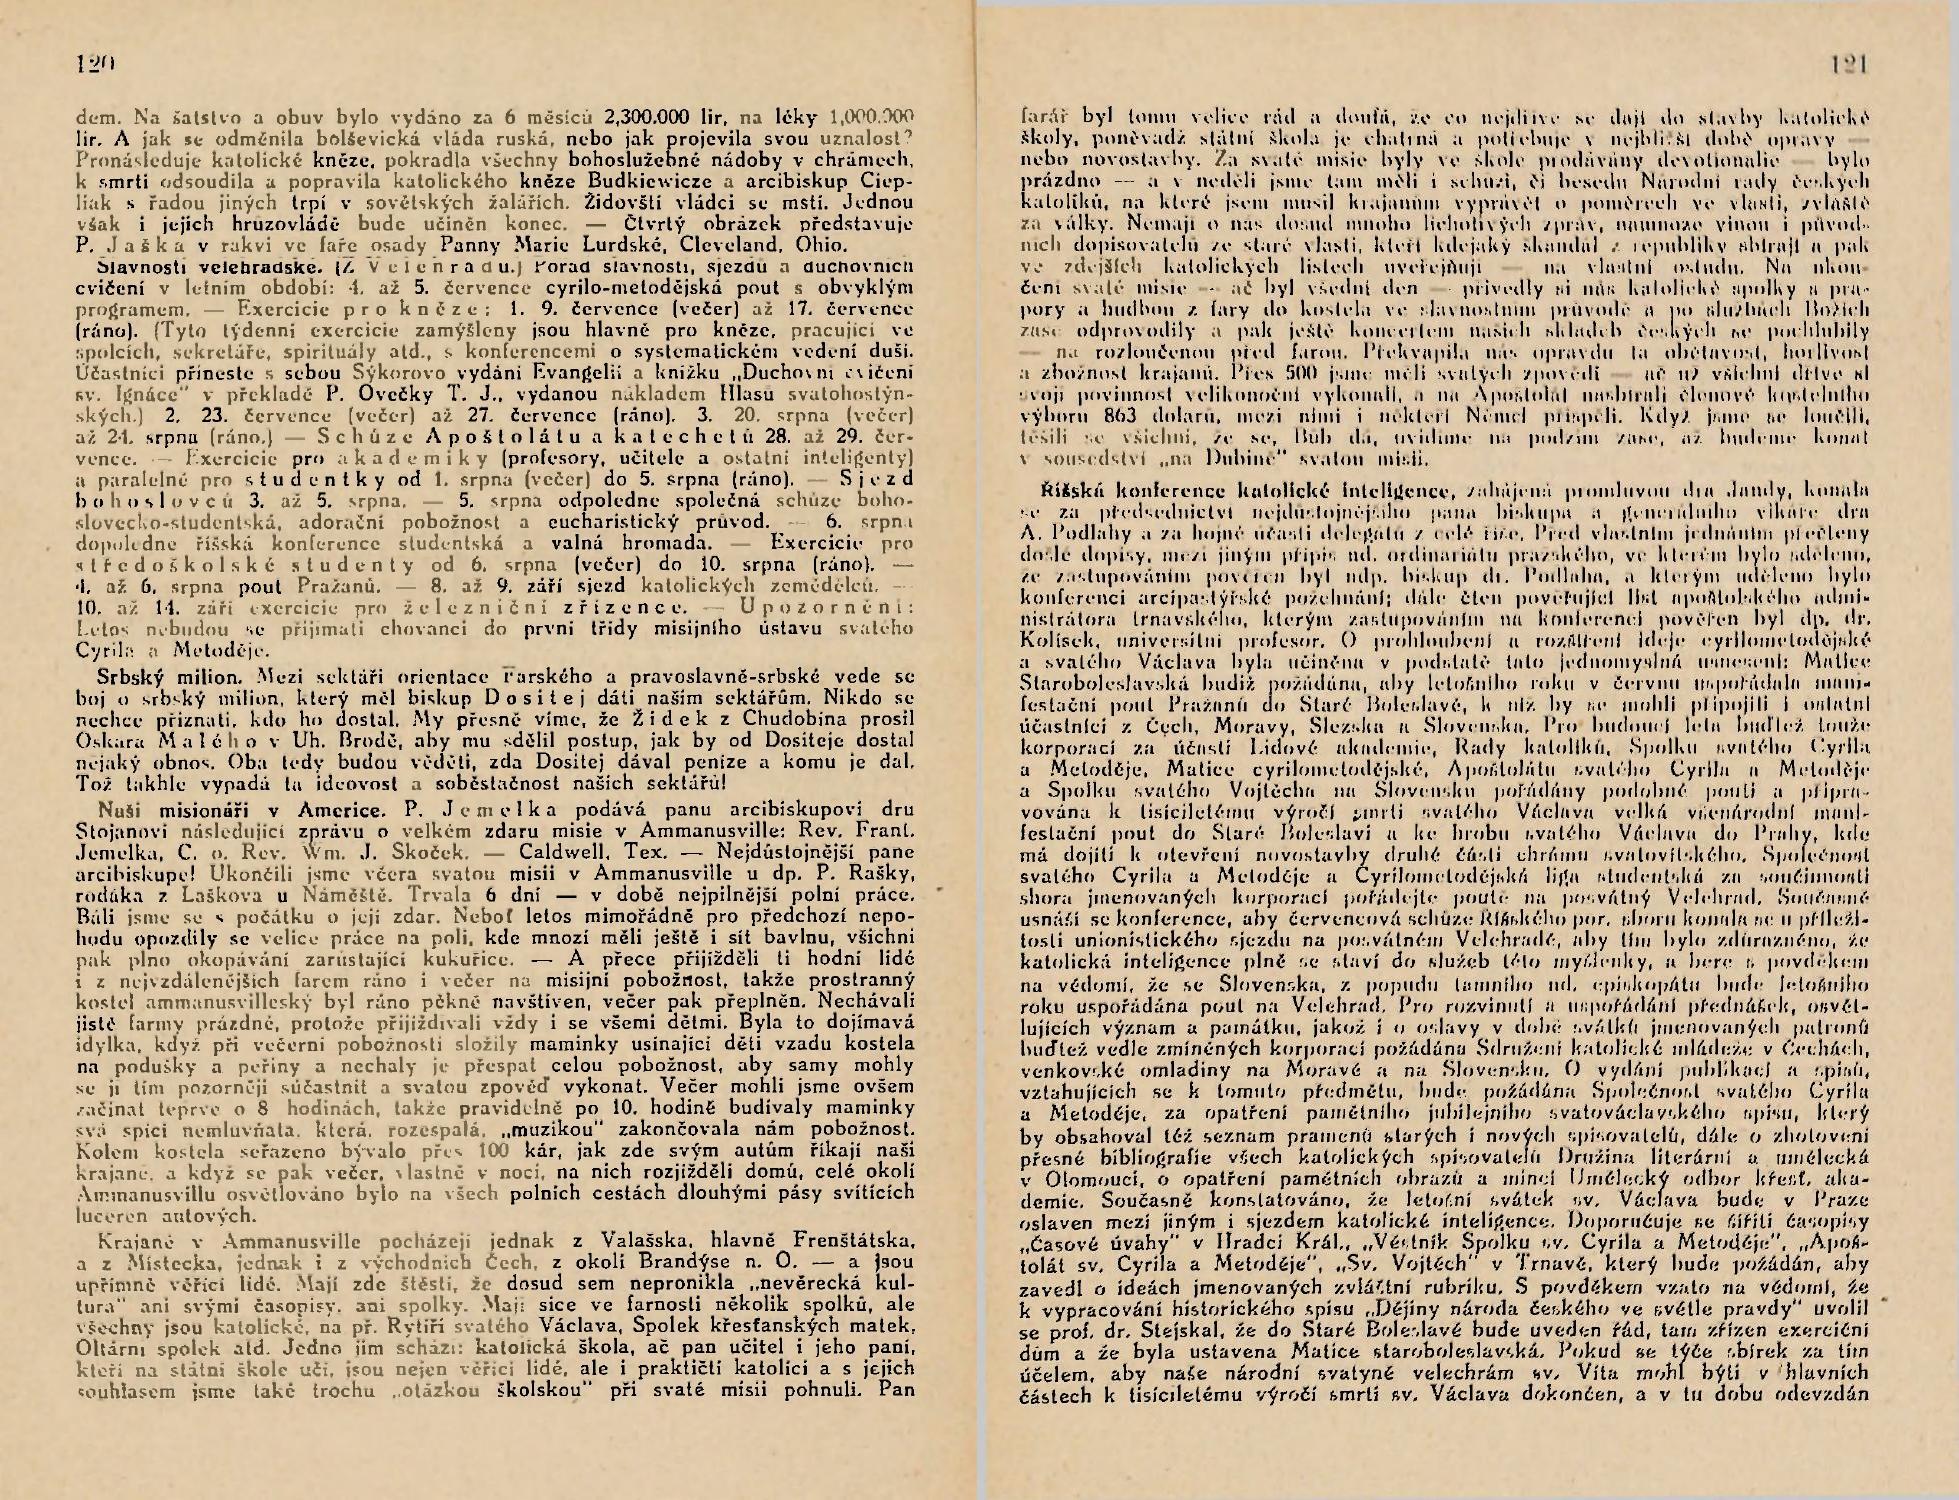 120
dem. Na šatstvo a obuv bylo vydáno za 6 měsíců 2,300.000 lir, na léky 1,000.000
lir. A jak se odměnila bolševická vláda ruská, nebo jak projevila svou uznalost?
Pronásleduje katolické kněze, pokradla všechny bohoslužebné nádoby v chrámech,
k smrti odsoudila a popravila katolického kněze Budkiewicze a arcibiskup Ciep-
liak s řadou jiných trpí v sovětských žalářích. Židovští vládci se mstí. Jednou
však i jejich hrůzovládě bude učiněn konec. — Čtvrtý obrázek představuje
P. Jaška v rakvi ve faře osady Panny Marie Lurdské, Cleveland, Ohio.
Slavnosti velehradské. (Z Velehradu.) Pořad slavností, sjezdů a duchovních
cvičení v letním období: 4. až 5. července cyrilo-metodějská pout s obvyklým
programem. — Exercicie pro kněze: 1. 9. července (večer) až 17. července
(ráno). (Tyto týdenní exercicie zamýšleny jsou hlavně pro kněze, pracující ve
spolcích, sekretáře, spirituály atd., s konferencemi o systematickém vedení duší.
Účastníci přineste s sebou Sýkorovo vydání Evangelií a knížku „Duchovní cvičení
sv. Ignáce" v překladě P. Ovečky T. J., vydanou nákladem Hlasů svatohostýn-
ských.) 2. 23. července (večer) až 27. července (ráno). 3. 20. srpna (večer)
až 24. srpna (ráno.) — Schůze Apoštolátu a katechetů 28. až 29. čer-
vence. — Exercicie pro akademiky (profesory, učitele a ostatní inteligenty)
a paralelně pro studentky od 1. srpna (večer) do 5. srpna (ráno). — Sjezd
bohoslovců 3. až 5. srpna. — 5. srpna odpoledne společná schůze boho-
slovecko-studentská, adorační pobožnost a eucharistický průvod. — 6. srpna
dopoledne říšská konference studentská a valná hromada. — Exercicie pro
středoškolské studenty od 6. srpna (večer) do 10. srpna (ráno). —
4. až 6. srpna pout Pražanů. — 8. až 9. září sjezd katolických zemědělců. —
10. až 14. září exercicie pro železniční zřízence. — Upozornění:
Letos nebudou se přijímati chovanci do první třídy misijního ústavu svatého
Cyrila a Metoděje.
Srbský milion. Mezi sektáři orientace Farského a pravoslavně-srbské vede se
boj o srbský milion, který měl biskup Dositej dáti našim sektářům. Nikdo se
nechce přiznati, kdo ho dostal. My přesně víme, že Žídek z Chudobína prosil
Oskara Malého v Uh. Brodě, aby mu sdělil postup, jak by od Dositeje dostal
nějaký obnos. Oba tedy budou věděti, zda Dositej dával peníze a komu je dal.
Tož takhle vypadá ta ideovost a soběstačnost našich sektářů!
Naši misionáři v Americe. P. Jemelka podává panu arcibiskupovi dru
Stojanovi následující zprávu o velkém zdaru misie v Ammanusville: Rev. Frant.
Jemelka, C. o. Rev. Wm. J. Skoček. — Caldwell, Tex. — Nejdůstojnější pane
arcibiskupe! Ukončili jsme včera svatou misii v Ammanusville u dp. P. Rašky,
rodáka z Laškova u Náměště. Trvala 6 dní — v době nejpilnější polní práce.
Báli jsme se s počátku o její zdar. Neboť letos mimořádně pro předchozí nepo-
hodu opozdily se velice práce na poli, kde mnozí měli ještě i sít bavlnu, všichni
pak plno okopávání zarůstající kukuřice. — A přece přijížděli ti hodní lidé
i z nejvzdálenějších farem ráno i večer na misijní pobožnost, takže prostranný
kostel ammanusvilleský byl ráno pěkně navštíven, večer pak přeplněn. Nechávali
jistě farmy prázdné, protože přijížděvali vždy i se všemi dětmi. Byla to dojímavá
idylka, když při večerní pobožnosti složily maminky usínající děti vzadu kostela
na podušky a peřiny a nechaly je přespat celou pobožnost, aby samy mohly
se jí tím pozorněji súčastnit a svatou zpověď vykonat. Večer mohli jsme ovšem
začínat teprve o 8 hodinách, takže pravidelně po 10. hodině budívaly maminky
svá spící nemluvňata, která, rozespalá, „muzikou" zakončovala nám pobožnost.
Kolem kostela seřazeno bývalo přes 100 kár, jak zde svým autům říkají naši
krajané, a když se pak večer, vlastně v noci, na nich rozjížděli domů, celé okolí
Ammanusvillu osvětlováno bylo na všech polních cestách dlouhými pásy svítících
luceren autových.
Krajané v Ammanusville pocházejí jednak z Valašska, hlavně Frenštátska,
a z Místecka, jednak i z východních Čech, z okolí Brandýse n. O. — a jsou
upřímně věřící lidé. Mají zde štěstí, že dosud sem nepronikla „nevěrecká kul-
tura" ani svými časopisy, ani spolky. Mají sice ve farnosti několik spolků, ale
všechny jsou katolické, na př. Rytíři svatého Václava, Spolek křesťanských matek,
Oltární spolek atd. Jedno jim schází: katolická škola, ač pan učitel i jeho paní,
kteří na státní škole učí, jsou nejen věřící lidé, ale i praktičtí katolíci a s jejich
souhlasem jsme také trochu „otázkou školskou" při svaté misii pohnuli. Pan
121
farář byl tomu velice rád a doufá, že co nejdříve se dají do stavby katolické
školy, poněvadž státní škola je chatrná a potřebuje v nejbližší době opravy —
nebo novostavby. Za svaté misie byly ve škole prodávány devotionalie — bylo
prázdno — a v neděli jsme tam měli i schůzi, či besedu Národní rady českých
katolíků, na které jsem musil krajanům vyprávět o poměrech ve vlasti, zvláště
za války. Nemají o nás dosud mnoho lichotivých zpráv, namnoze vinou i původ-
ních dopisovatelů ze staré vlasti, kteří kdejaký skandál z republiky sbírají a pak
ve zdejších katolických listech uveřejňují — na vlastní ostudu. Na ukon-
čení svaté misie — ač byl všední den — přivedly si nás katolické spolky a pra-
pory a hudbou z fary do kostela ve slavnostním průvodě a po službách Božích
zase odprovodily a pak ještě koncertem našich skladeb českých se pochlubily
— na rozloučenou před farou. Překvapila nás opravdu ta obětavost, horlivost
a zbožnost krajanů. Přes 500 jsme měli svatých zpovědí — ač už všichni dříve si
svoji povinnost velikonoční vykonali, a na Apoštolát nasbírali členové kostelního
výboru 863 dolarů, mezi nimi i někteří Němci přispěli. Když jsme se loučili,
těšili se všichni, že se, Bůh dá, uvidíme na podzim zase, až budeme konat
v sousedství „na Dubině" svatou misii.
Říšská konference katolické inteligence, zahájená promluvou dra Jandy, konala
se za předsednictví nejdůstojnějšího pana biskupa a generálního vikáře dra
A. Podlahy a za hojné účasti delegátů z celé říše. Před vlastním jednáním přečteny
došlé dopisy, mezi jiným přípis nd. ordinariátu pražského, ve kterém bylo sděleno,
že zastupováním pověřen byl ndp. biskup dr. Podlaha, a kterým uděleno bylo
konferenci arcipastýřské požehnání; dále čten pověřující list apoštolského admi-
nistrátora trnavského, kterým zastupováním na konferenci pověřen byl dp. dr.
Kolísek, universitní profesor. O prohloubení a rozšíření ideje cyrilometodějské
a svatého Václava byla učiněna v podstatě tato jednomyslná usnesení: Matice
Staroboleslavská budiž požádána, aby letošního roku v červnu uspořádala mani-
festační pout Pražanů do Staré Boleslavě, k níž by se mohli připojili i ostatní
účastníci z Čech, Moravy, Slezska a Slovenska. Pro budoucí léta buďtež touže
korporací za účasti Lidové akademie, Rady katolíků, Spolku svatého Cyrila
a Metoděje, Matice cyrilometodějské, Apoštolátu svatého Cyrila a Metoděje
a Spolku svatého Vojtěcha na Slovensku pořádány podobné pouti a připra-
vována k tisíciletému výročí smrti svatého Václava velká všenárodní mani-
festační pout do Staré Boleslavi a ke hrobu svatého Václava do Prahy, kde
má dojíti k otevření novostavby druhé části chrámu svatovítského. Společnost
svatého Cyrila a Metoděje a Cyrilometodějská liga studentská za součinnosti
shora jmenovaných korporací pořádejte poutě na posvátný Velehrad. Současně
usnáší se konference, aby červencová schůze Říšského por. sboru konala se u příleži-
tosti unionistického sjezdu na posvátném Velehradě, aby tím bylo zdůrazněno, že
katolická inteligence plně se staví do služeb této myšlenky, a bere s povděkem
na vědomí, že se Slovenska, z popudu tamního nd. episkopátu bude letošního
roku uspořádána pout na Velehrad. Pro rozvinutí a uspořádání přednášek, osvět-
lujících význam a památku, jakož i o oslavy v době svátků jmenovaných patronů
buďtež vedle zmíněných korporací požádána Sdružení katolické mládeže v Čechách,
venkovské omladiny na Moravě a na Slovensku. O vydání publikací a spisů,
vztahujících se k tomuto předmětu, bude požádána Společnost svatého Cyrila
a Metoděje, za opatření pamětního jubilejního svatováclavského spisu, který
by obsahoval též seznam pramenů starých i nových spisovatelů, dále o zhotovení
přesné bibliografie všech katolických spisovatelů Družina literární a umělecká
v Olomouci, o opatření pamětních obrazů a mincí Umělecký odbor křest. aka-
demie. Současně konstatováno, že letošní svátek sv. Václava bude v Praze
oslaven mezi jiným i sjezdem katolické inteligence. Doporučuje se šířiti časopisy
„Časové úvahy" v Hradci Král., „Věstník Spolku sv. Cyrila a Metoděje", „Apoš-
tolát sv. Cyrila a Metoděje", „Sv. Vojtěch" v Trnavě, který bude požádán, aby
zavedl o ideách jmenovaných zvláštní rubriku. S povděkem vzato na vědomí, že
k vypracování historického spisu „Dějiny národa českého ve světle pravdy" uvolil
se prof. dr. Stejskal, že do Staré Boleslavě bude uveden řád, tam zřízen exerciční
dům a že byla ustavena Matice staroboleslavská. Pokud se týče sbírek za tím
účelem, aby naše národní svatyně velechrám sv. Víta mohl býti v hlavních
částech k tisíciletému výročí smrti sv. Václava dokončen, a v tu dobu odevzdán